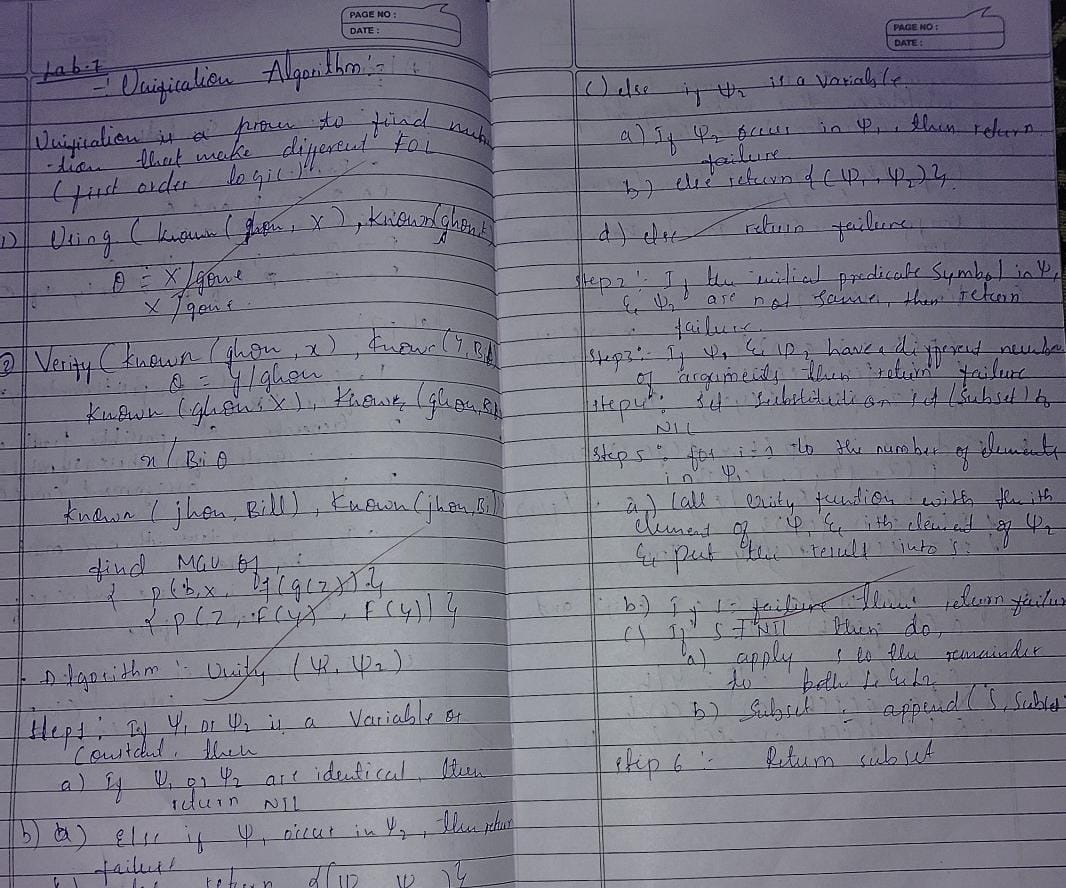 PAGE NO :
DATE :
Lab-7
-: Unification Algorithm :-
Unification is a to find
-tion that make different FOL
(first order logic)
1) Using (known (ghon, X), known(ghon
θ = X/gone
X/gone
2) Verity (known (ghon, x), know (y, Bi
θ = y/ghon
known (ghon, X), knows (ghon, Bi
x / Bi θ
known (jhon, Bill), known (jhon, Bill
find MGU of,
{ p(b, x, f(g(z)) }
{ p(z, f(y), f(y)) }
Algorithm : Unity (Ψ1, Ψ2)
Step1: If Ψ1 or Ψ2 is a Variable or
Constant, then
a) If Ψ1 or Ψ2 are identical, then
return NIL
b) a) else if Ψ1 occur in Ψ2, then return
failure
return {(Ψ Ψ )}
PAGE NO :
DATE :
c) else if Ψ2 is a variable
a) If Ψ2 occurs in Ψ1, then return
failure
b) else return {(Ψ1, Ψ2)}.
d) else return failure.
step2 :- If the initial predicate symbol in Ψ1
& Ψ2 are not same, then return
failure.
Step3 :- If Ψ1 & Ψ2 have a different number
of arguments then return failure
step4 : Set substitution set (Subset) to
NIL
Step5 : for i=1 to the number of elements
in Ψ1
a) Call unity function with the ith
element of Ψ1 & ith element of Ψ2
& put the result into s.
b) If s = failure then return failure
c) If S ≠ NIL then do,
a) apply s to the remainder
to both L1 & L2
b) Subset = append (S, Subset
step 6 :- Return subset